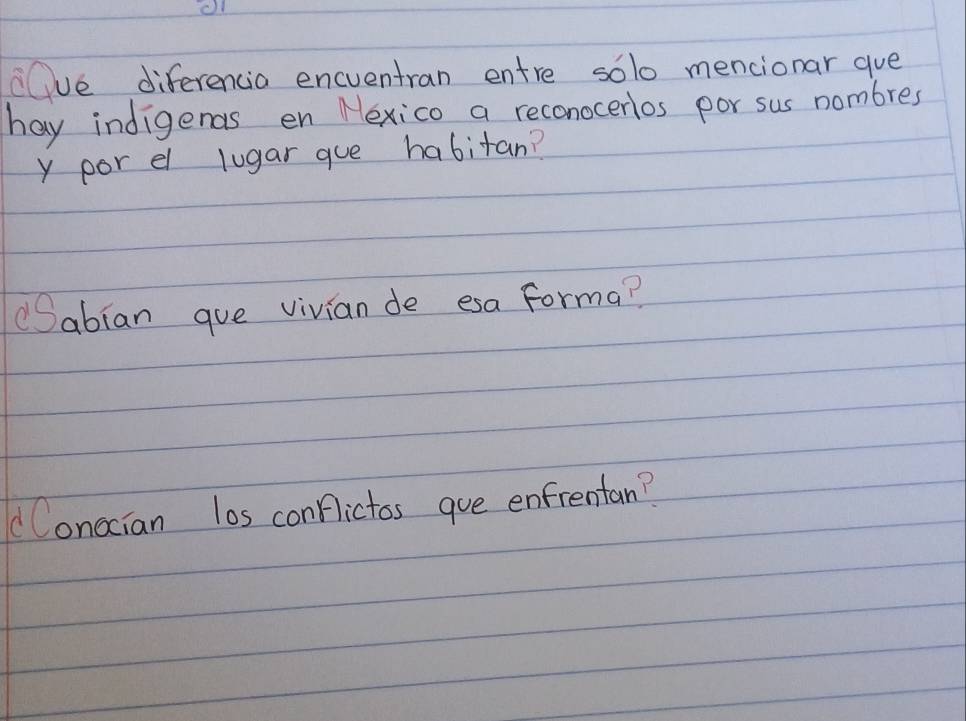 ¿Qué diferencia encuentran entre sólo mencionar que
hay indígenas en México a reconocerlos por sus nombres
y por el lugar que habitan?
¿Sabían que vivían de esa forma?
¿Conocían los conflictos que enfrentan?